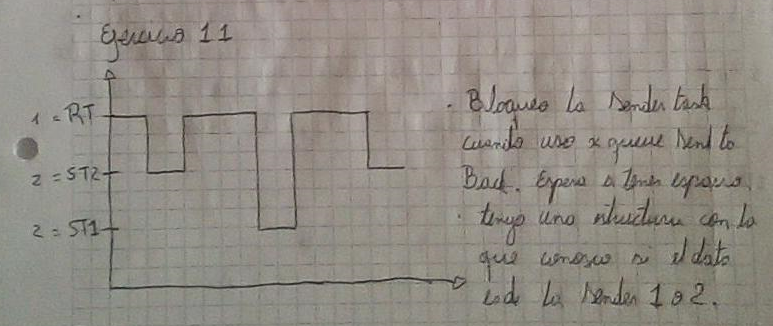 Ejercicio 11
1 = RT
2 = ST2
2 = ST1
· Bloqueo la sender task
cuando uso xqueue Send to
Back. Espera a tener espacio.
· tengo una estructura con la
que conosco si el dato
es de la sender 1 o 2.